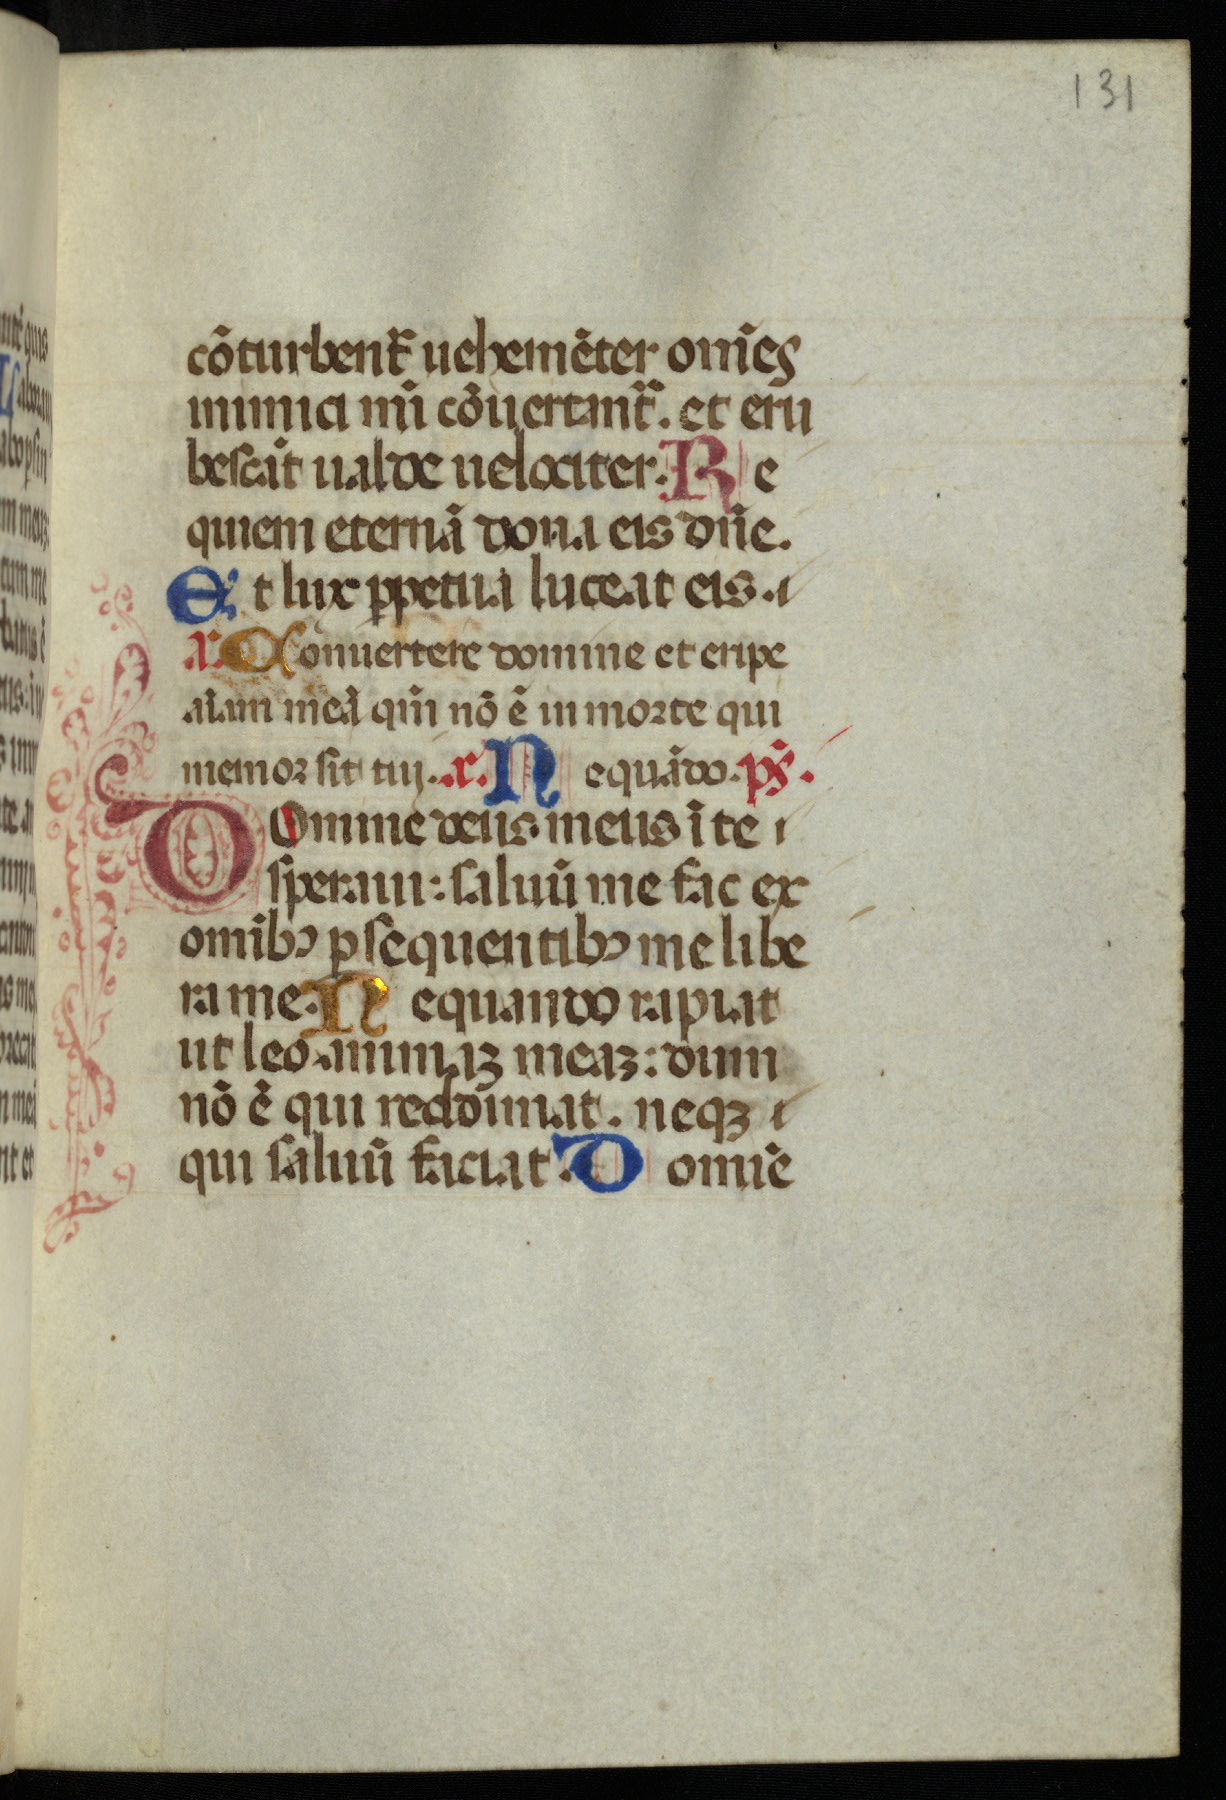 131
cōturbent᷑ uehemēter om̄es
inimici mī cōuertant᷑. et eru
bescāt ualde uelociter. Re
quiem eternā dona eis dn̄e.
Et lux ꝑpetua luceat eis.
Conuertere domine et eripe
aīam meā qm̄ nō ē in morte qui
memor sit tui. Nequādo. ps̄.
Domine deus meus ī te
speraui: saluū me fac ex
omībꝰ ꝑsequentibꝰ me libe
ra me. Nequando rapiat
ut leo animaꝫ meaꝫ: dum
nō ē qui reddimat. neqꝫ
qui saluū faciat. Domīe